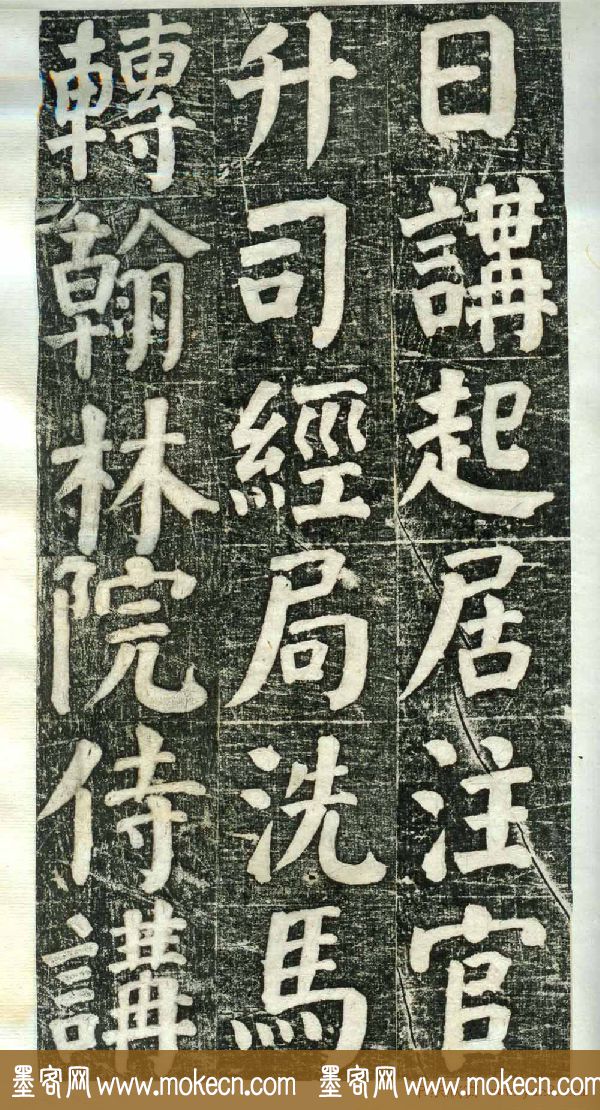 日講起居注官
升司經局洗馬
轉翰林院侍講
墨客网 www.mokecn.com 墨客网 www.mokecn.com